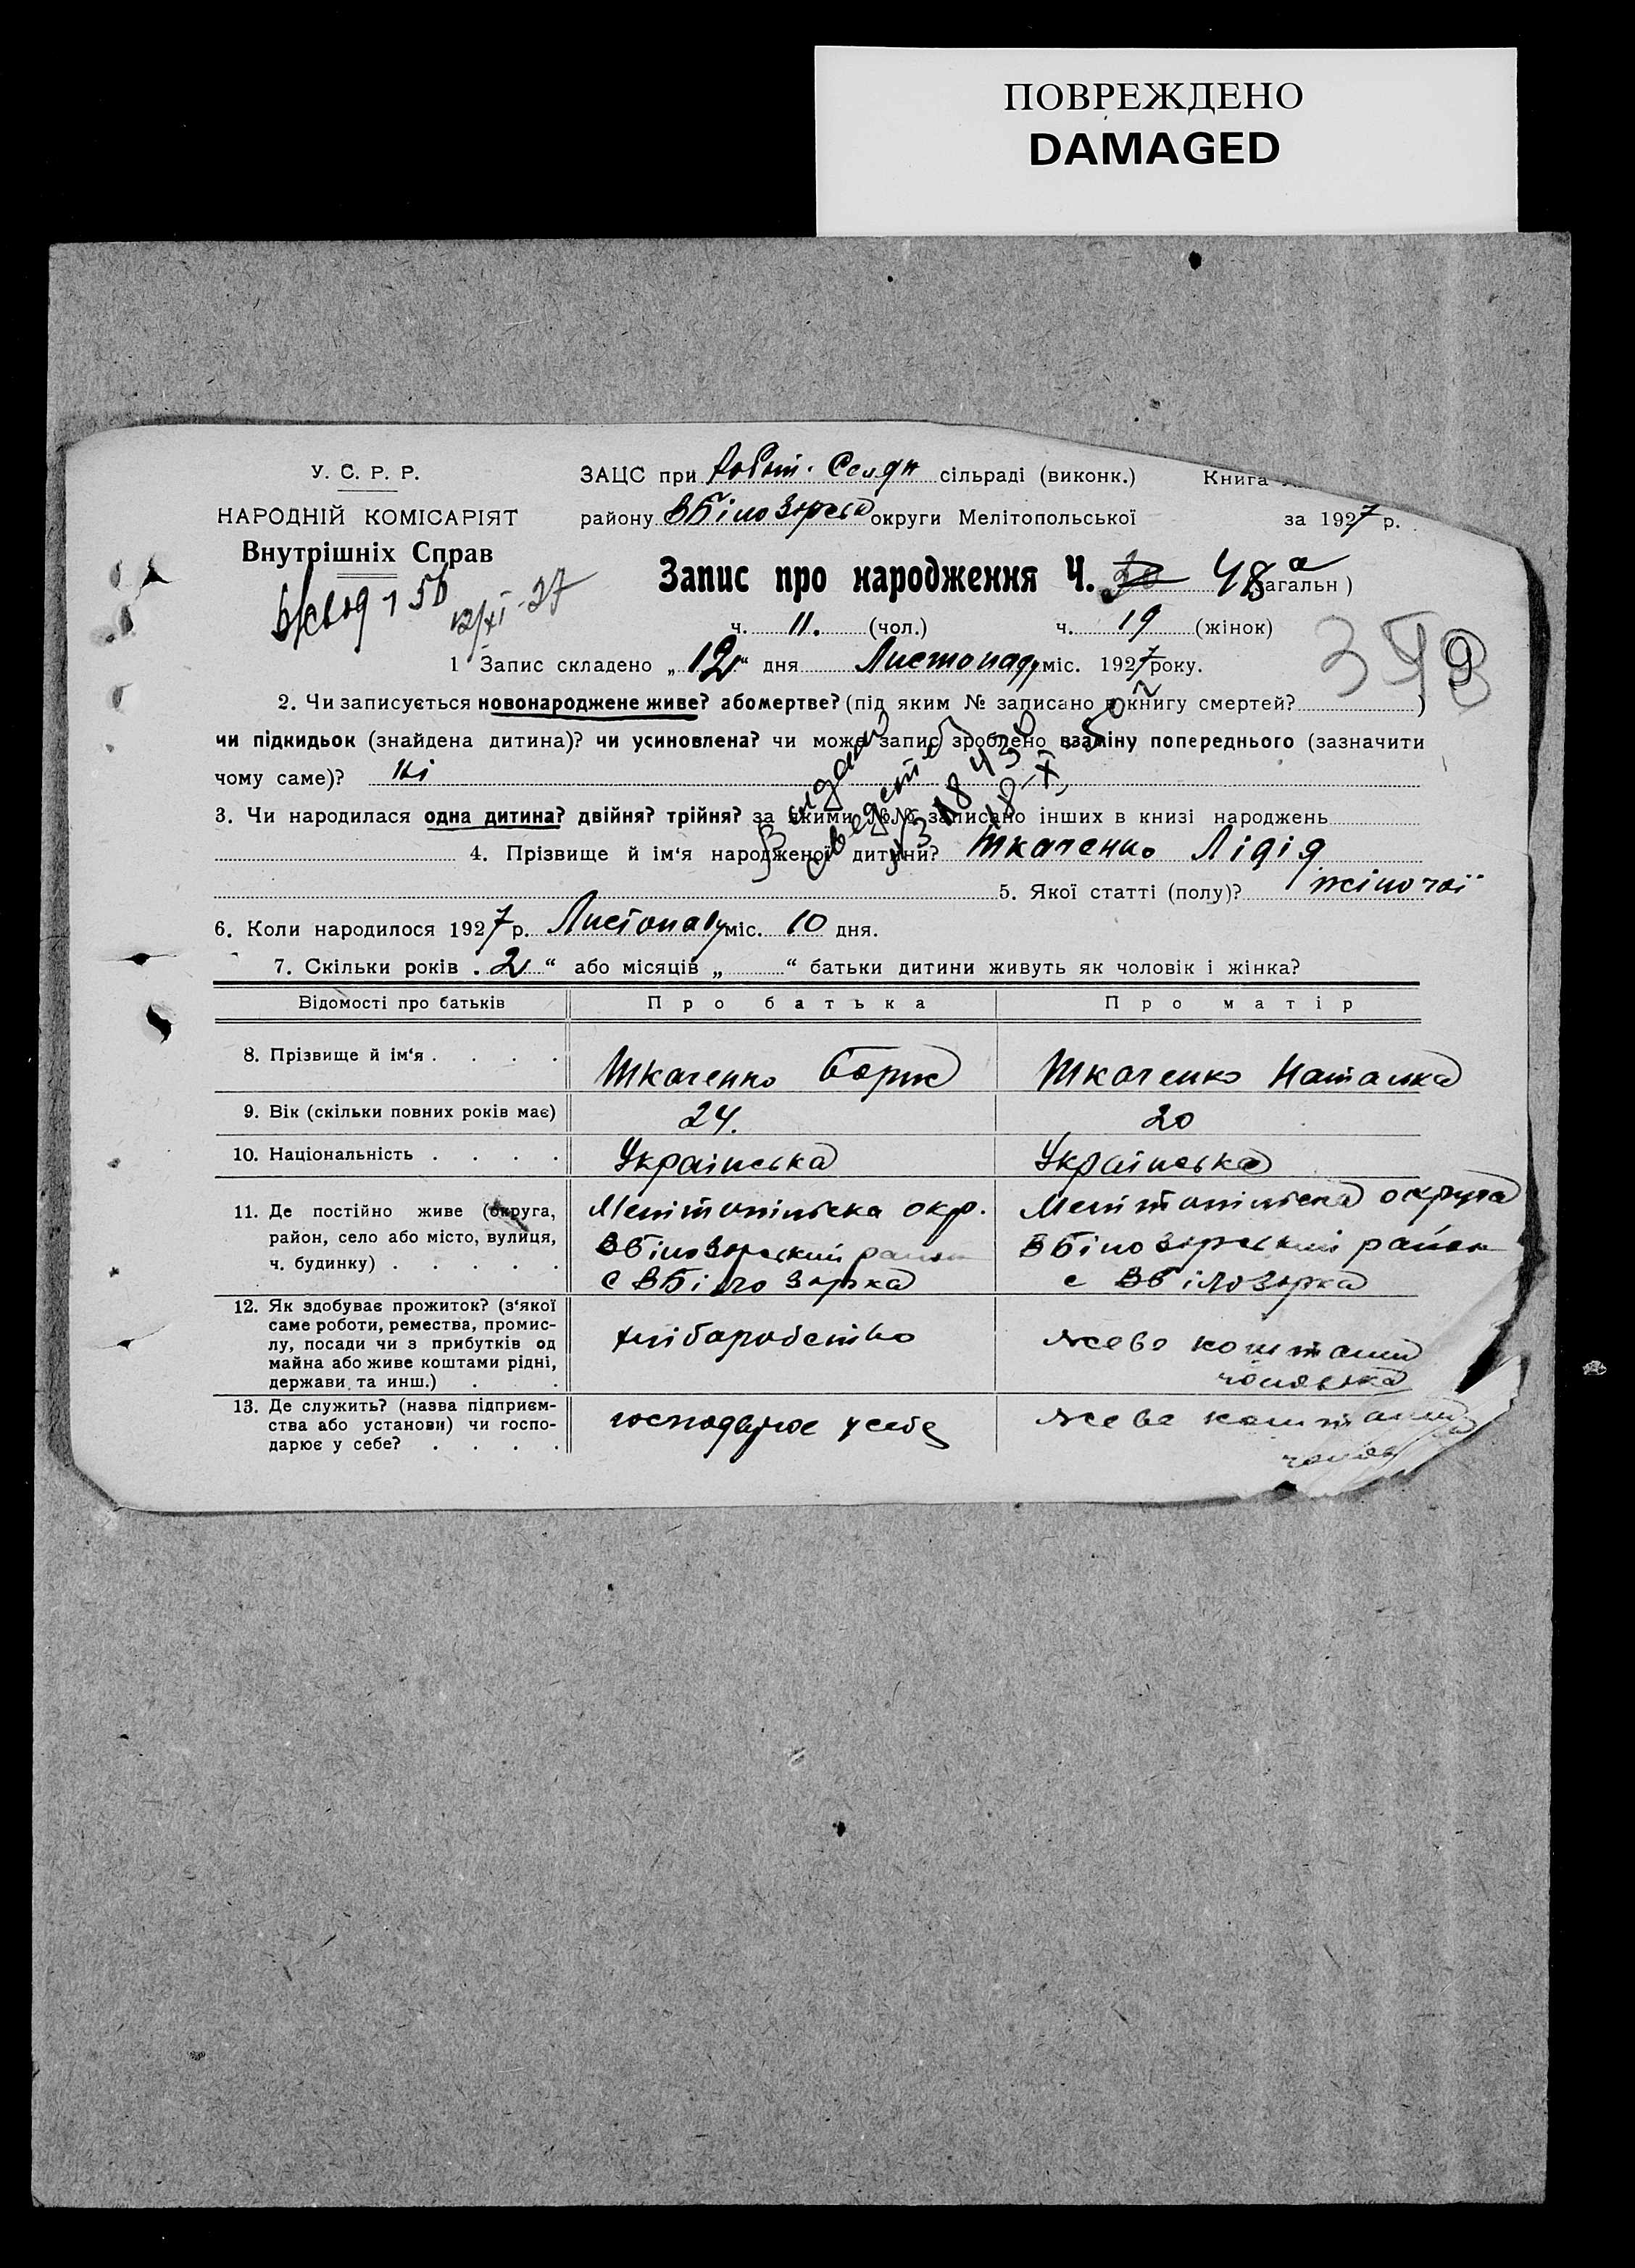 ПОВРЕЖДЕНО
DAMAGED
У. С. Р. Р.
НАРОДНІЙ КОМІСАРІЯТ
Внутрішніх Справ
12/XI-27
ЗАЦС при сільраді (виконк.) Книга
району ВБілозірськ округи Мелітопольської за 1927 р.
Запис про народження Ч. 30 48а (загальн )
ч. 11. (чол.) ч. 19 (жінок)
1 Запис складено „12" дня Листопаду міс. 1927 року.
398
2. Чи записується новонароджене живе? або мертве? (під яким № записано в книгу смертей? )
чи підкидьок (знайдена дитина)? чи усиновлена? чи може запис зроблено взаміну попереднього (зазначити
чому саме)? Ні
3. Чи народилася одна дитина? двійня? трійня? за якими №№ записано інших в книзі народжень
4. Прізвище й ім'я народженої дитини? Ткаченко Лідія
5. Якої статті (полу)? жіночої
6. Коли народилося 1927 р. Листопаду міс. 10 дня.
7. Скільки років „2" або місяців „ " батьки дитини живуть як чоловік і жінка?
Відомості про батьків Про батька Про матір
8. Прізвище й ім'я . . . . Ткаченко Борис Ткаченко Наталка
9. Вік (скільки повних років має) 24. 20
10. Національність . . . . Українська Українська
11. Де постійно живе (округа, Мелітопільска окр. Мелітопільска округа
район, село або місто, вулиця, ВБілозірський район ВБілозірський район
ч. будинку) . . . . . с ВБілозірка с ВБілозірка
12. Як здобуває прожиток? (з'якої
саме роботи, ремества, промис- хліборобство живе коштами
лу, посади чи з прибутків од
майна або живе коштами рідні, чоловіка
держави та инш.) . .
13. Де служить? (назва підприєм- господарює у себе живе коштами
ства або установи) чи госпо-
дарює у себе? . . . .